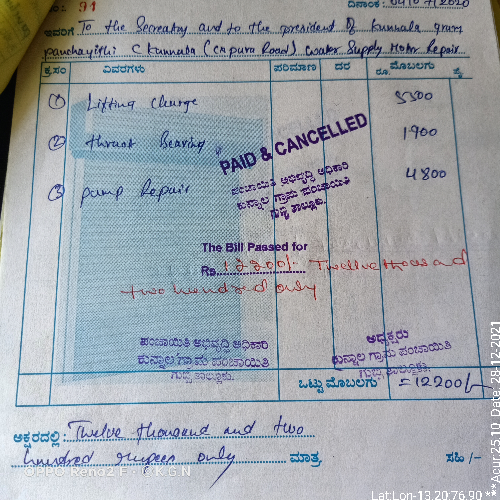 ನಂ: 91 ದಿನಾಂಕ: 04/07/2020
ಇವರಿಗೆ To the Secreatry and to the president of Kunnala gram
panchayithi C Kunnala (Cnpura Road) water Supply Motor Repair
ಕ್ರ.ಸಂ ವಿವರಗಳು ಪರಿಮಾಣ ದರ ಮೊಬಲಗು
ರೂ. ಪೈ.
1 Lifting Charge 5500
2 thrust Bearing 1900
3 pump Repair 4800
PAID & CANCELLED
ಪಂಚಾಯಿತಿ ಅಭಿವೃದ್ಧಿ ಅಧಿಕಾರಿ
ಕುನ್ನಾಲ ಗ್ರಾಮ ಪಂಚಾಯಿತಿ
ಗುಬ್ಬಿ ತಾಲ್ಲೂಕು.
The Bill Passed for
Rs. 12200/- Twelve thousand
two hundred only
ಪಂಚಾಯಿತಿ ಅಭಿವೃದ್ಧಿ ಅಧಿಕಾರಿ
ಕುನ್ನಾಲ ಗ್ರಾಮ ಪಂಚಾಯಿತಿ
ಗುಬ್ಬಿ ತಾಲ್ಲೂಕು.
ಅಧ್ಯಕ್ಷರು
ಕುನ್ನಾಲ ಗ್ರಾಮ ಪಂಚಾಯಿತಿ
ಗುಬ್ಬಿ ತಾಲ್ಲೂಕು.
ಒಟ್ಟು ಮೊಬಲಗು =12200/-
ಅಕ್ಷರದಲ್ಲಿ: Twelve thousand and two
hundred rupees only ಮಾತ್ರ. ಸಹಿ /-
OPPO Reno2 F © K.G.N
Lat Lon-13.20 76.90 ***cur 25 10 Date 28-12-2021